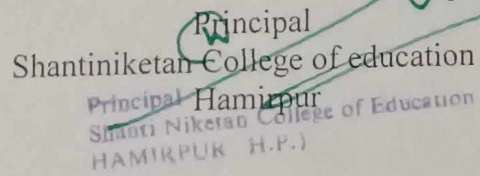 Principal
Shantiniketan College of education
Hamirpur
Principal
Shanti Niketan College of Education
HAMIRPUR H.P.)